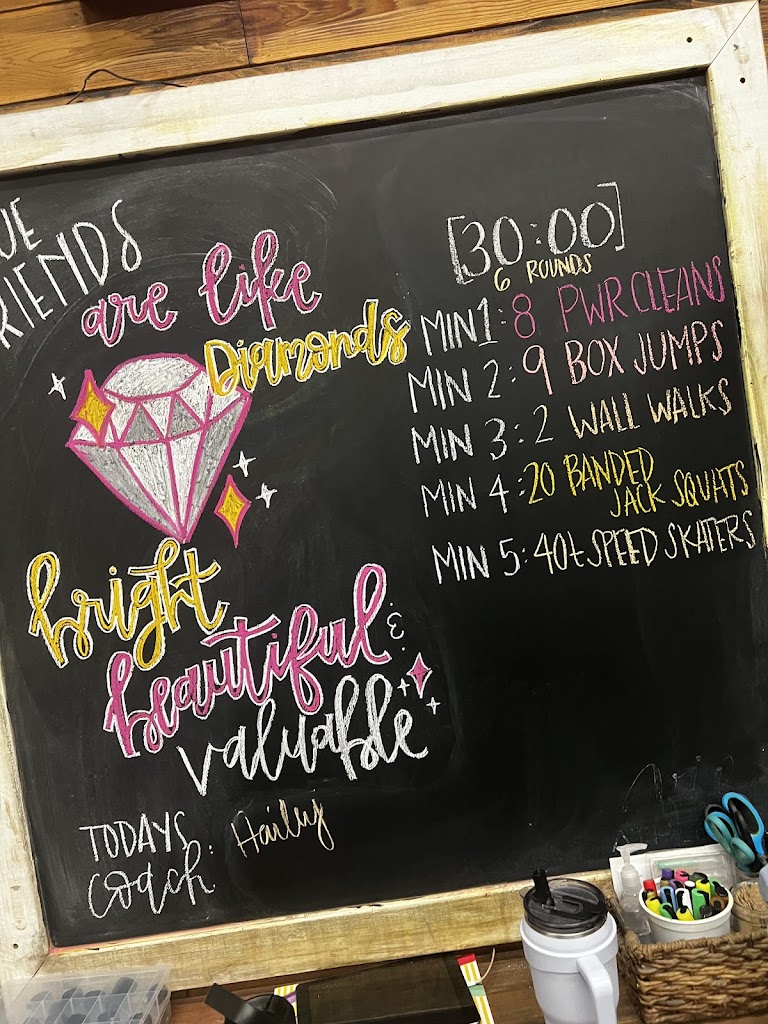 UE
RIENDS
are like
Diamonds
bright
beautiful &
valuable
TODAYS
coach: Hailey
[30:00]
6 ROUNDS
MIN 1: 8 PWR CLEANS
MIN 2: 9 BOX JUMPS
MIN 3: 2 WALL WALKS
MIN 4: 20 BANDED
JACK SQUATS
MIN 5: 40+ SPEED SKATERS